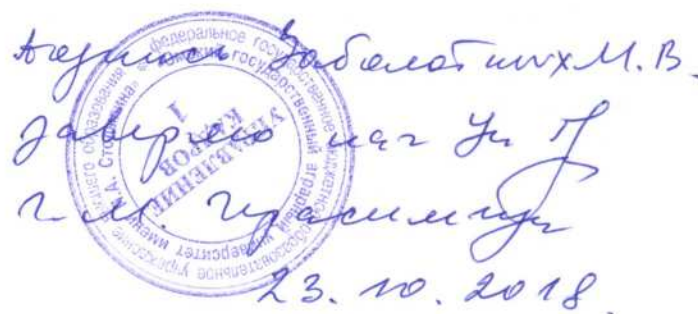 Подпись Заболотных М.В.
заверяю нач УК
Г.М. Герасимчук
23.10.2018.
федеральное государственное бюджетное образовательное учреждение высшего образования
«Омский государственный аграрный университет имени П.А. Столыпина»
УПРАВЛЕНИЕ
КАДРОВ
1